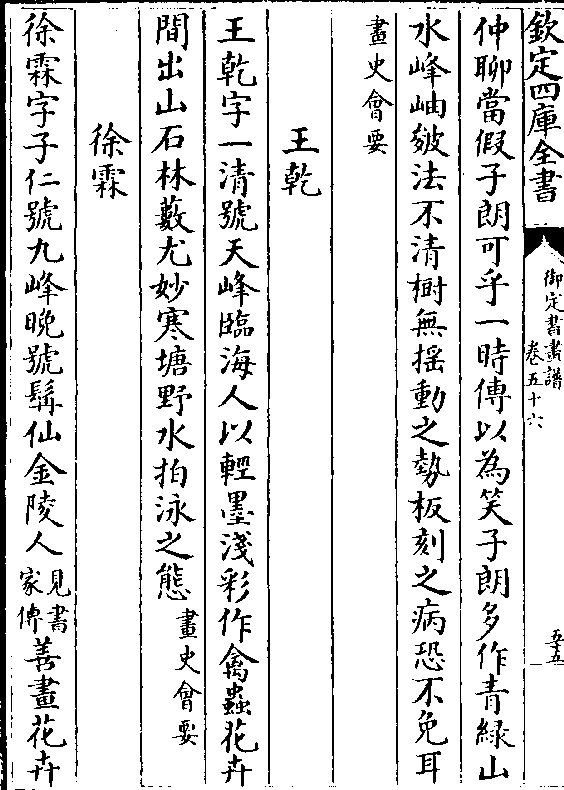 欽定四庫全書
御定書畫譜
卷五十六
五十五
仲聊當假子朗可乎一時傳以為笑子朗多作青綠山
水峰岫皴法不清樹無揺動之勢板刻之病恐不免耳
畫史會要
王乾
王乾字一清號天峰臨海人以輕墨淺彩作禽蟲花卉
間出山石林藪尤妙寒塘野水拍泳之態畫史會要
徐霖
徐霖字子仁號九峰晚號髯仙金陵人見書家傳善畫花卉